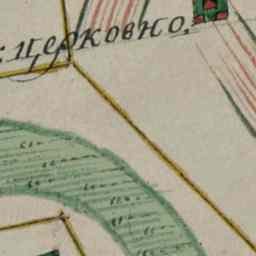 церковно,